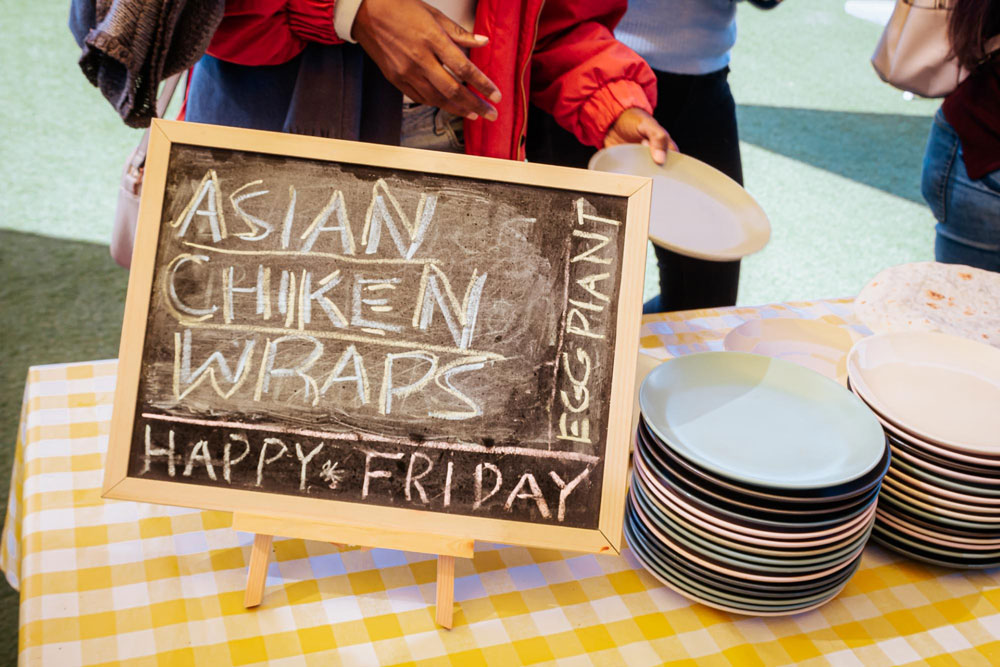 ASIAN
CHIKEN
WRAPS
EGGPIANT
HAPPY * FRIDAY